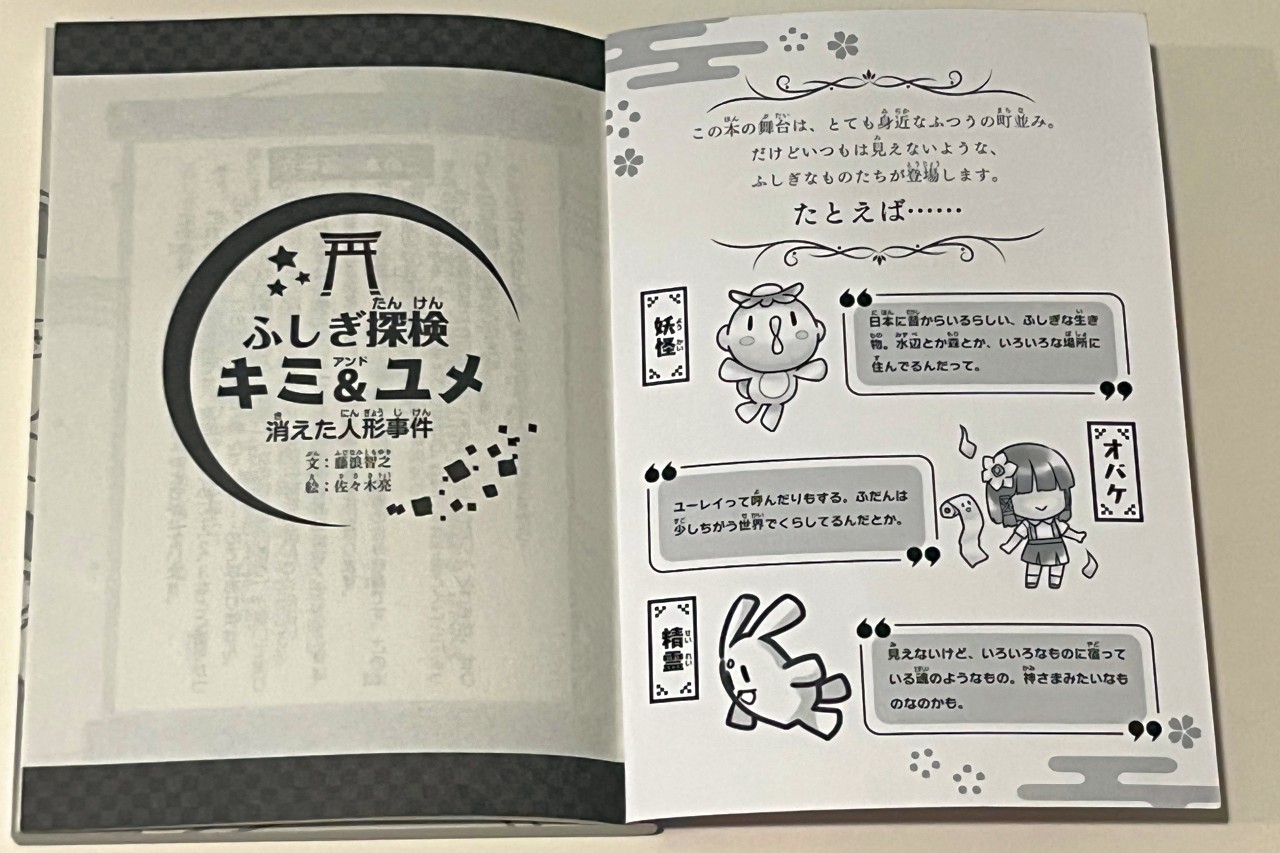 ふしぎ探検
キミ&ユメ
消えた人形事件
文：藤浪智之
絵：佐々木亮
この本の舞台は、とても身近なふつうの町並み。
だけどいつもは見えないような、
ふしぎなものたちが登場します。
たとえば……
妖怪
日本に昔からいるらしい、ふしぎな生き
物。水辺とか森とか、いろいろな場所に
住んでるんだって。
オバケ
ユーレイって呼んだりもする。ふだんは
少しちがう世界でくらしてるんだとか。
精霊
見えないけど、いろいろなものに宿って
いる魂のようなもの。神さまみたいなも
のなのかも。